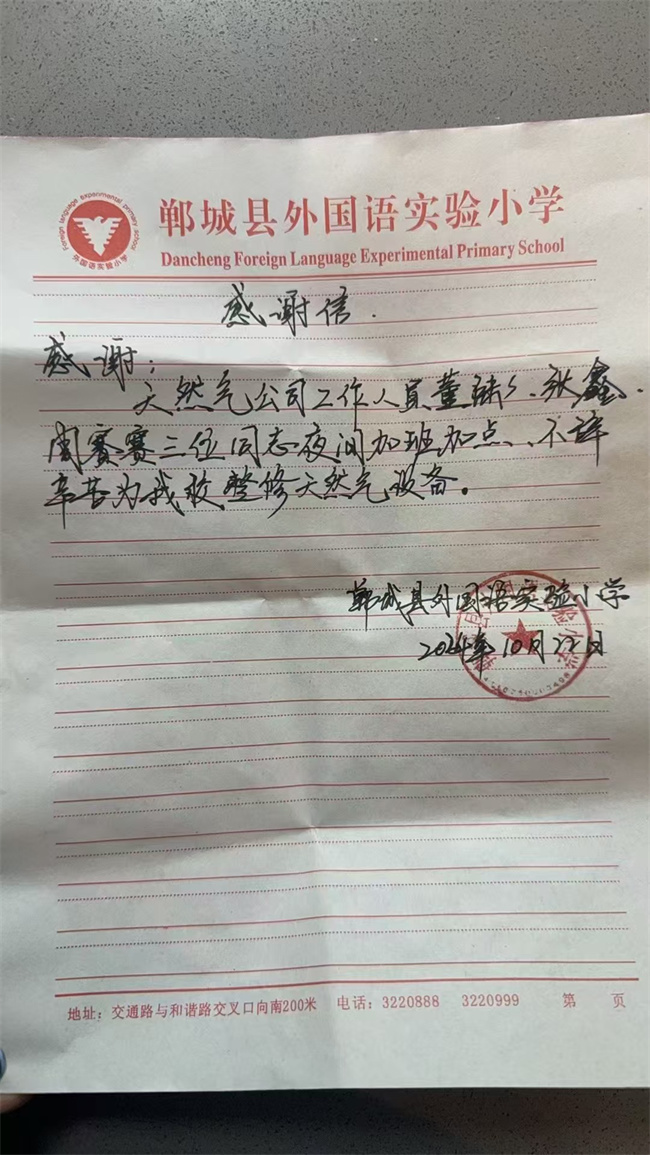 郸城县外国语实验小学
Dancheng Foreign Language Experimental Primary School
Foreign language experimental primary school
感谢信.
感谢:
天然气公司工作人员董、张鑫、
闫赛赛三位同志夜间加班加点、不辞
辛苦为我校整修天然气设备。
郸城县外国语实验小学
2024年10月22日
地址：交通路与和谐路交叉口向南200米 电话：3220888 3220999 第 页